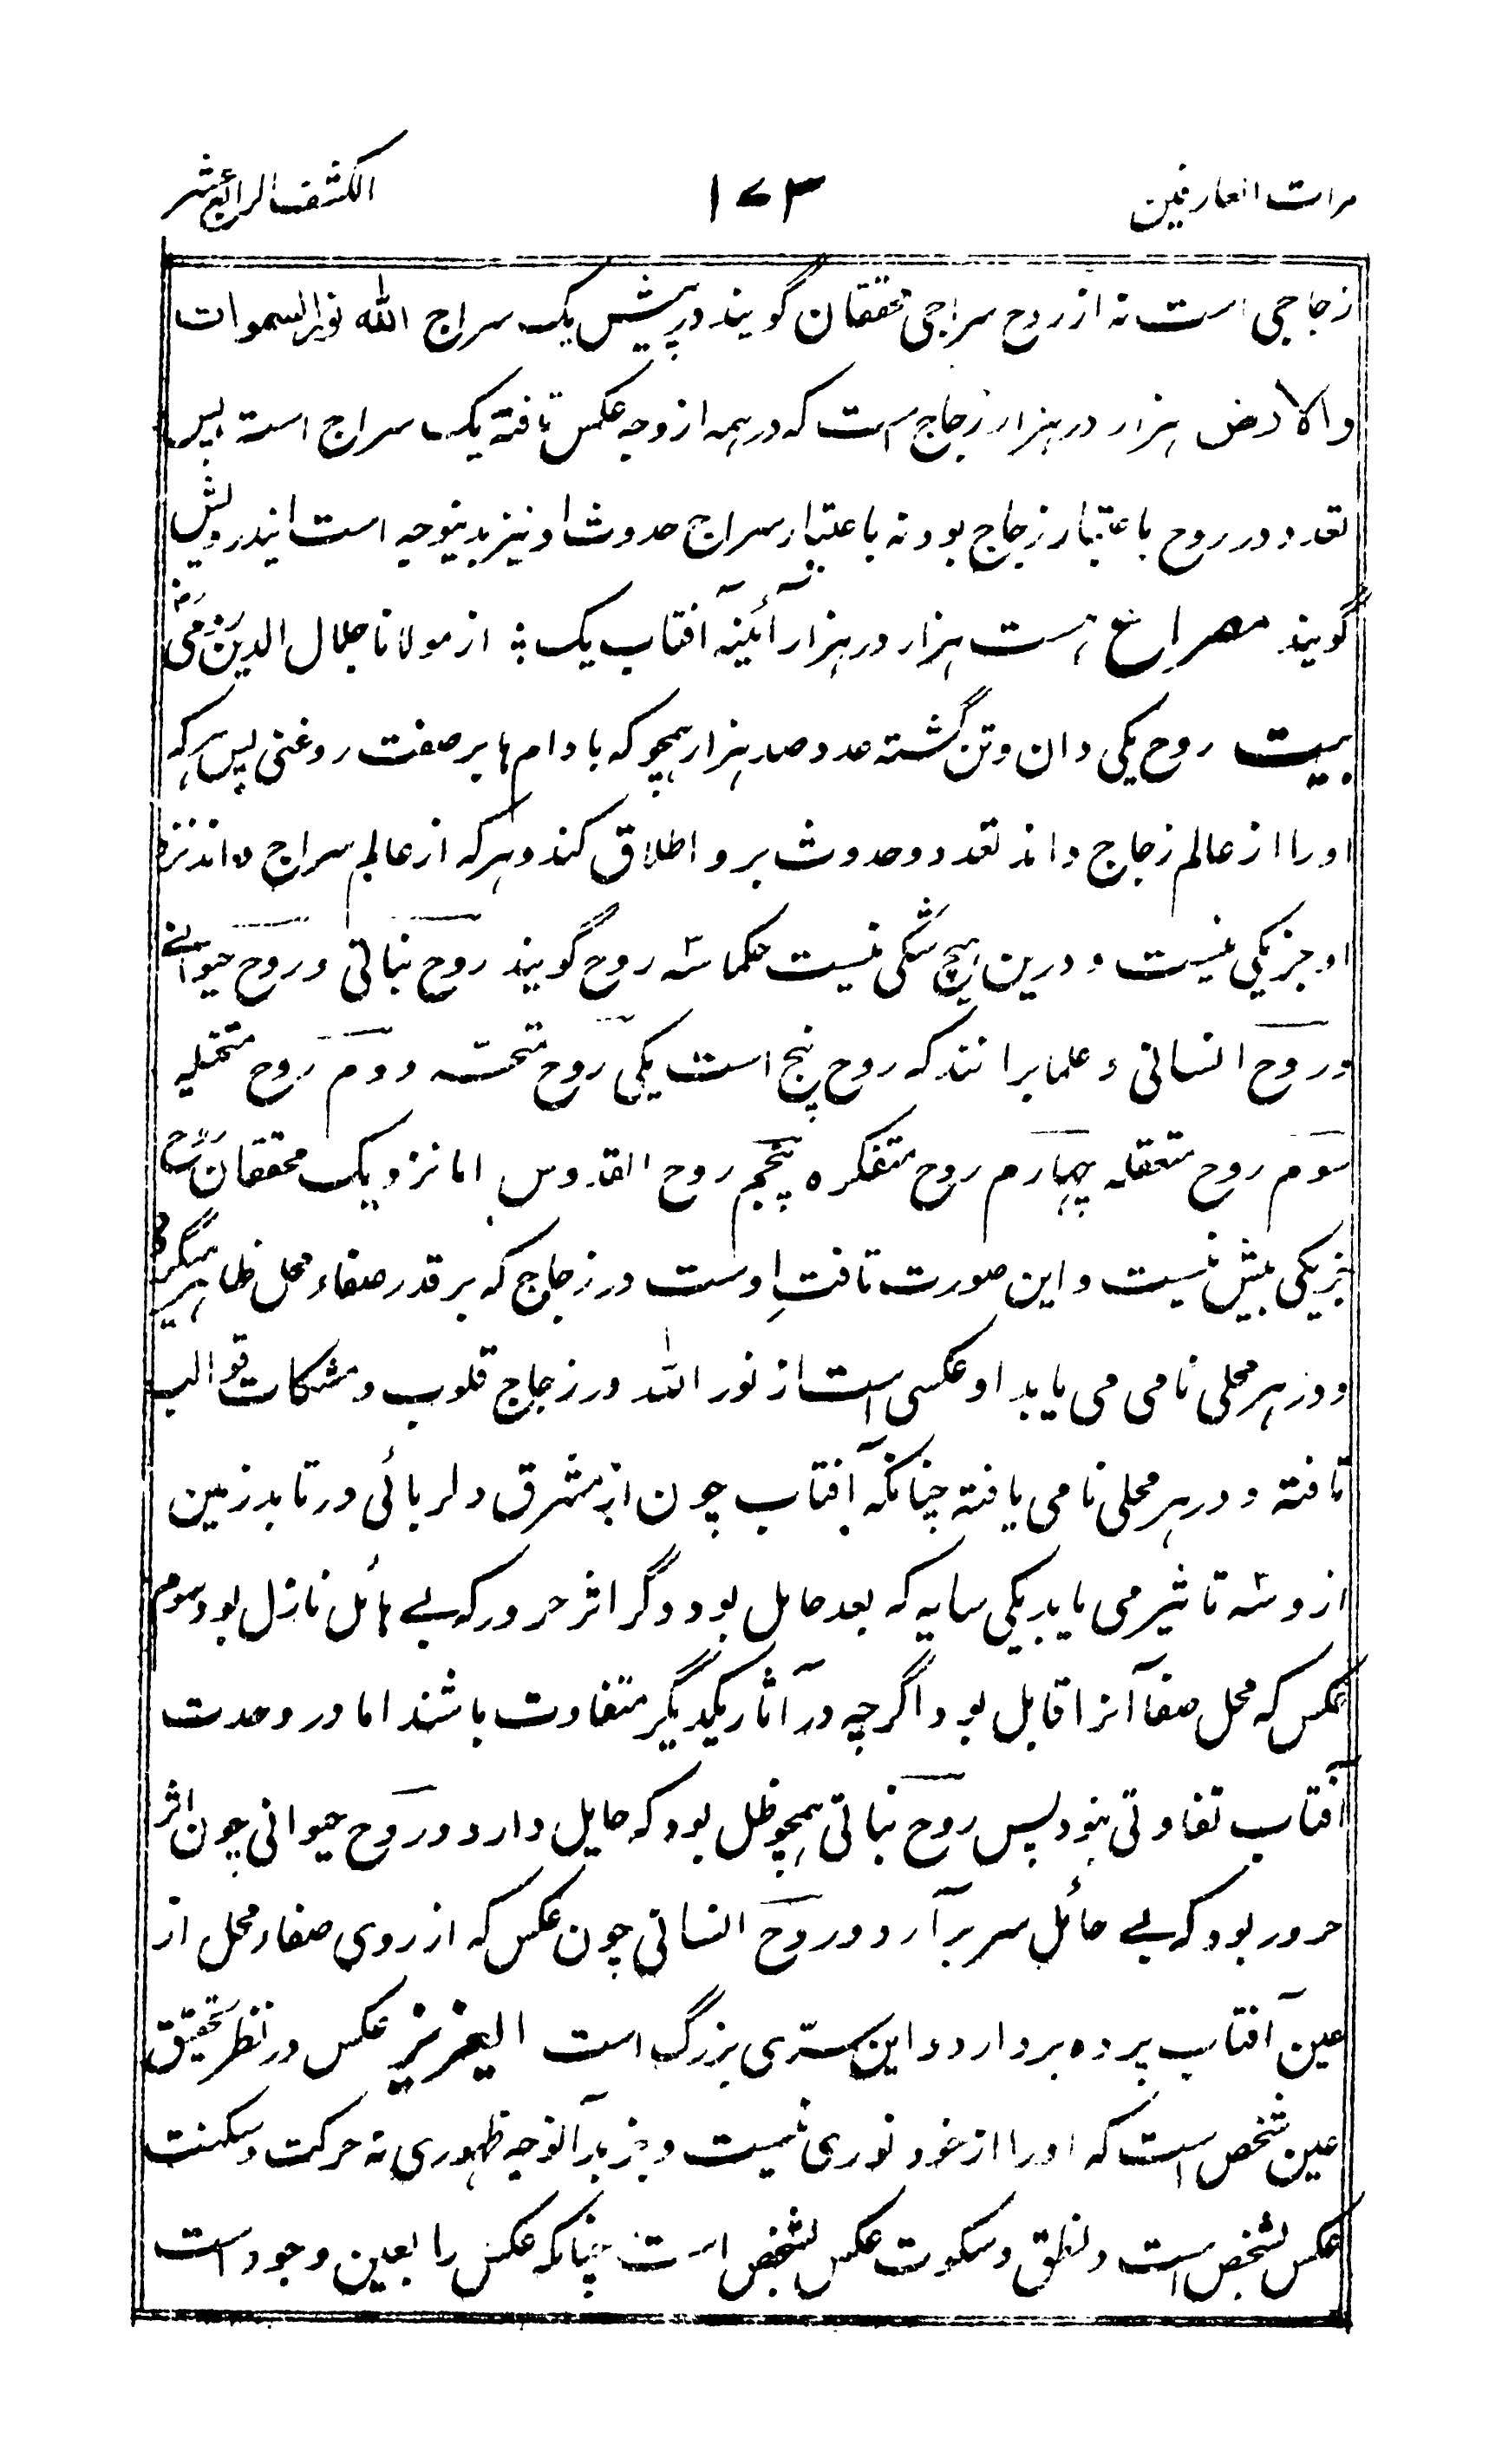 مرات العارفین ۱۷۳ الکشف الرابع عشر
زجاجی است نه از روح سراجی محققان گویند در پیش یک سراج الله نور السموات
والارض هزار در هزار زجاج است که در همه از وجه عکس تافته یک سراج است پس
تعدد در روح باعتبار زجاج بود نه باعتبار سراج حدوث او نیز بدینوجه است ایندرویش
گویند مصراع هست هزار در هزار آئینه آفتاب یک ؛ از مولانا جلال الدین رومی رض
بیت روح یکی دان و تن گشته عدد صد هزار همچو که بادام ها بر صفت روغنی پس هر که
او را از عالم زجاج داند تعدد و حدوث برو اطلاق کند و هر که از عالم سراج داند نزد
او جز یکی نیست و درین هیچ شکی نیست حکما سه روح گویند روح نباتی و روح حیوانے
و روح انسانی و علما برانند که روح پنج است یکی روح متحسّه دوم روح متخیلہ
سوم روح متعقله چهارم روح متفکره پنجم روح القدوس اما نزدیک محققان روح
جز یکی بیش نیست و این صورت تافتِ اوست در زجاج که بر قدر صفاء محل ظاهر میگردد
و در هر محلی نامی می یابد او عکسی است از نور الله در زجاج قلوب و مشکات قوالب
تافته و در هر محلی نامی یافته چنانکه آفتاب چون از مشرق دلربائی در تابد زمین
ازو سه تاثیر می یابد یکی سایه که بعد حایل بود دگر اثر حرور که بے حائل نازل بود سوم
عکس که محل صفا آنرا قابل بود اگرچه در آثار یکدیگر متفاوت باشند اما در وحدت
آفتاب تفاوتی نبود پس روح نباتی همچو ظل بود که حایل دارد و روح حیوانی چون اثر
حرور بود که بے حائل سر بر آرد و روح انسانی چون عکس که از روی صفاء محل از
عین آفتاب پرده بردارد و این سرّی بزرگ است ایعزیز عکس در نظر تحقیق
عین شخص است که او را از خود نوری نیست و جز بدآنوجه ظهوری نه حرکت و سکنت
عکس بشخص است و نطق و سکوت عکس بشخص است چنانکه عکس را بعین وجود است